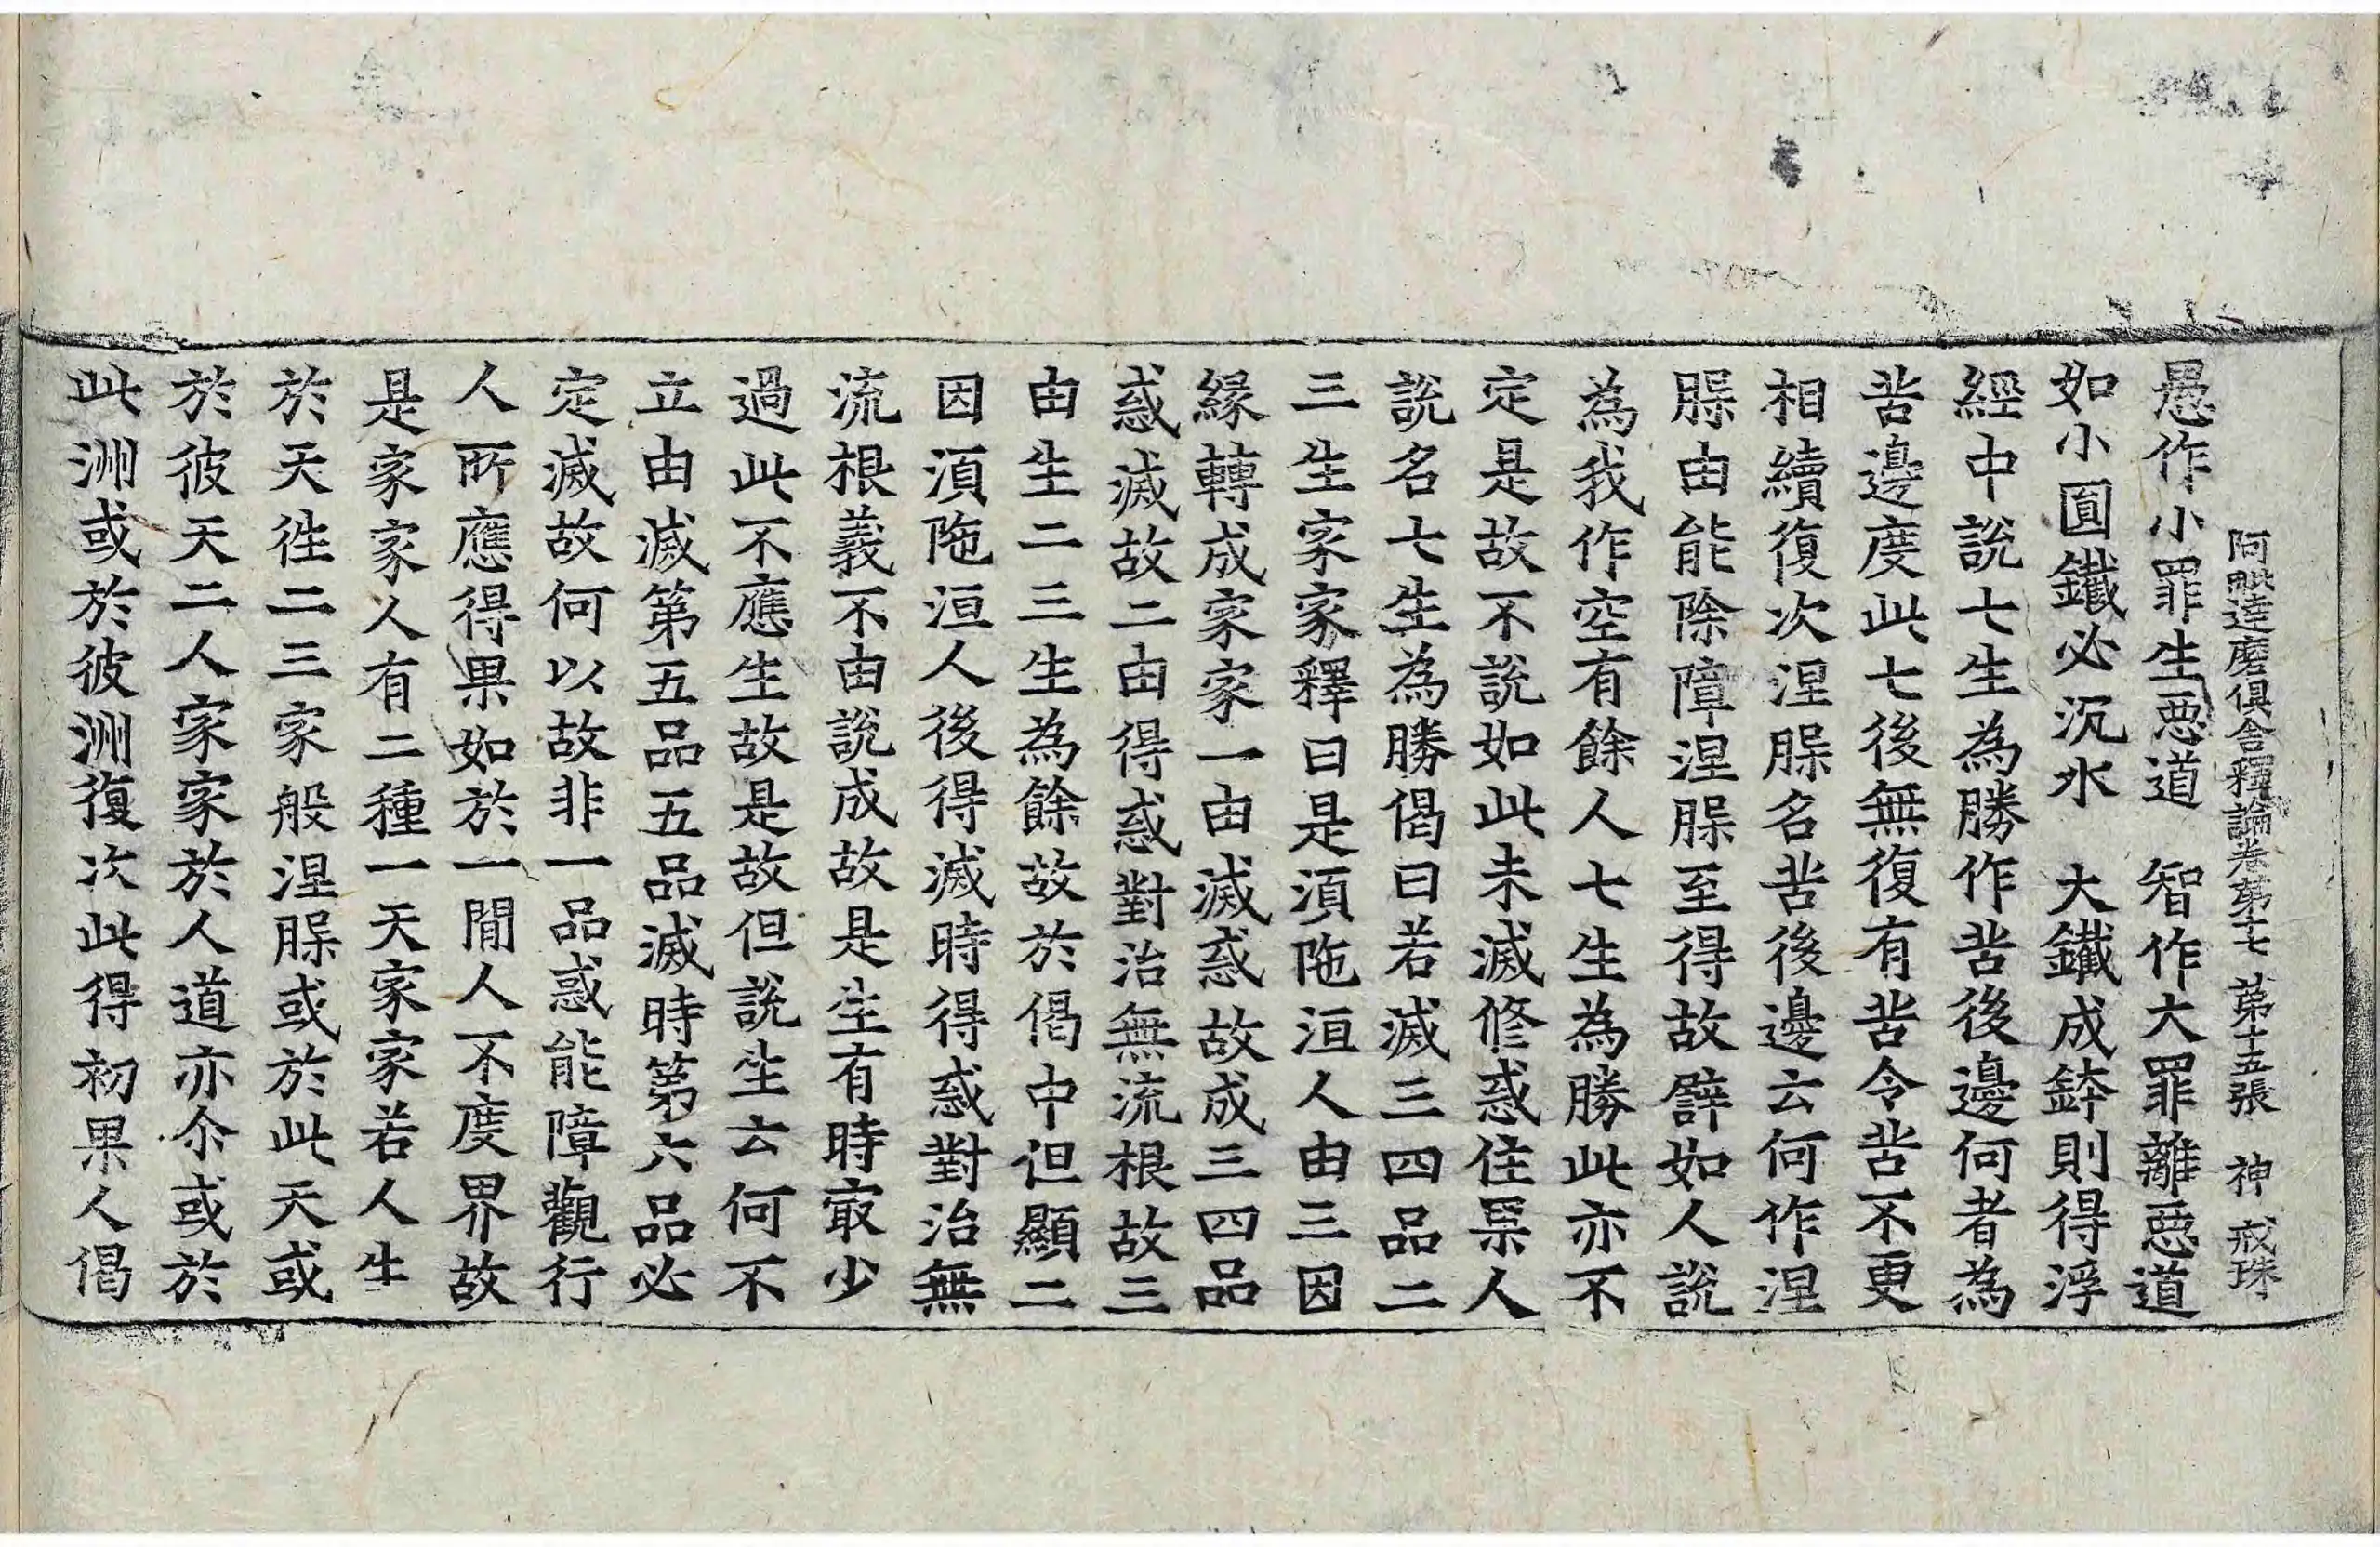 阿毗達磨俱舍釋論卷第十七 第十五張 神 戒珠
愚作小罪生惡道 智作大罪離惡道
如小圓鐵必沉水 大鐵成鉢則得浮
經中說七生為勝作苦後邊何者為
苦邊度此七後無復有苦令苦不更
相續復次涅槃名苦後邊云何作涅
槃由能除障涅槃至得故譬如人說
為我作空有餘人七生為勝此亦不
定是故不說如此未滅修惑住果人
說名七生為勝偈曰若滅三四品二
三生家家釋曰是湏陁洹人由三因
緣轉成家家一由滅惑故成三四品
惑滅故二由得惑對治無流根故三
由生二三生為餘故於偈中但顯二
因湏陁洹人後得滅時得惑對治無
流根義不由說成故是生有時㝡少
過此不應生故是故但說生云何不
立由滅第五品五品滅時第六品必
定滅故何以故非一品惑能障觀行
人所應得果如於一閒人不度界故
是家家人有二種一天家家若人生
於天徃二三家般涅槃或於此天或
於彼天二人家家於人道亦尒或於
此洲或於彼洲復次此得初果人偈